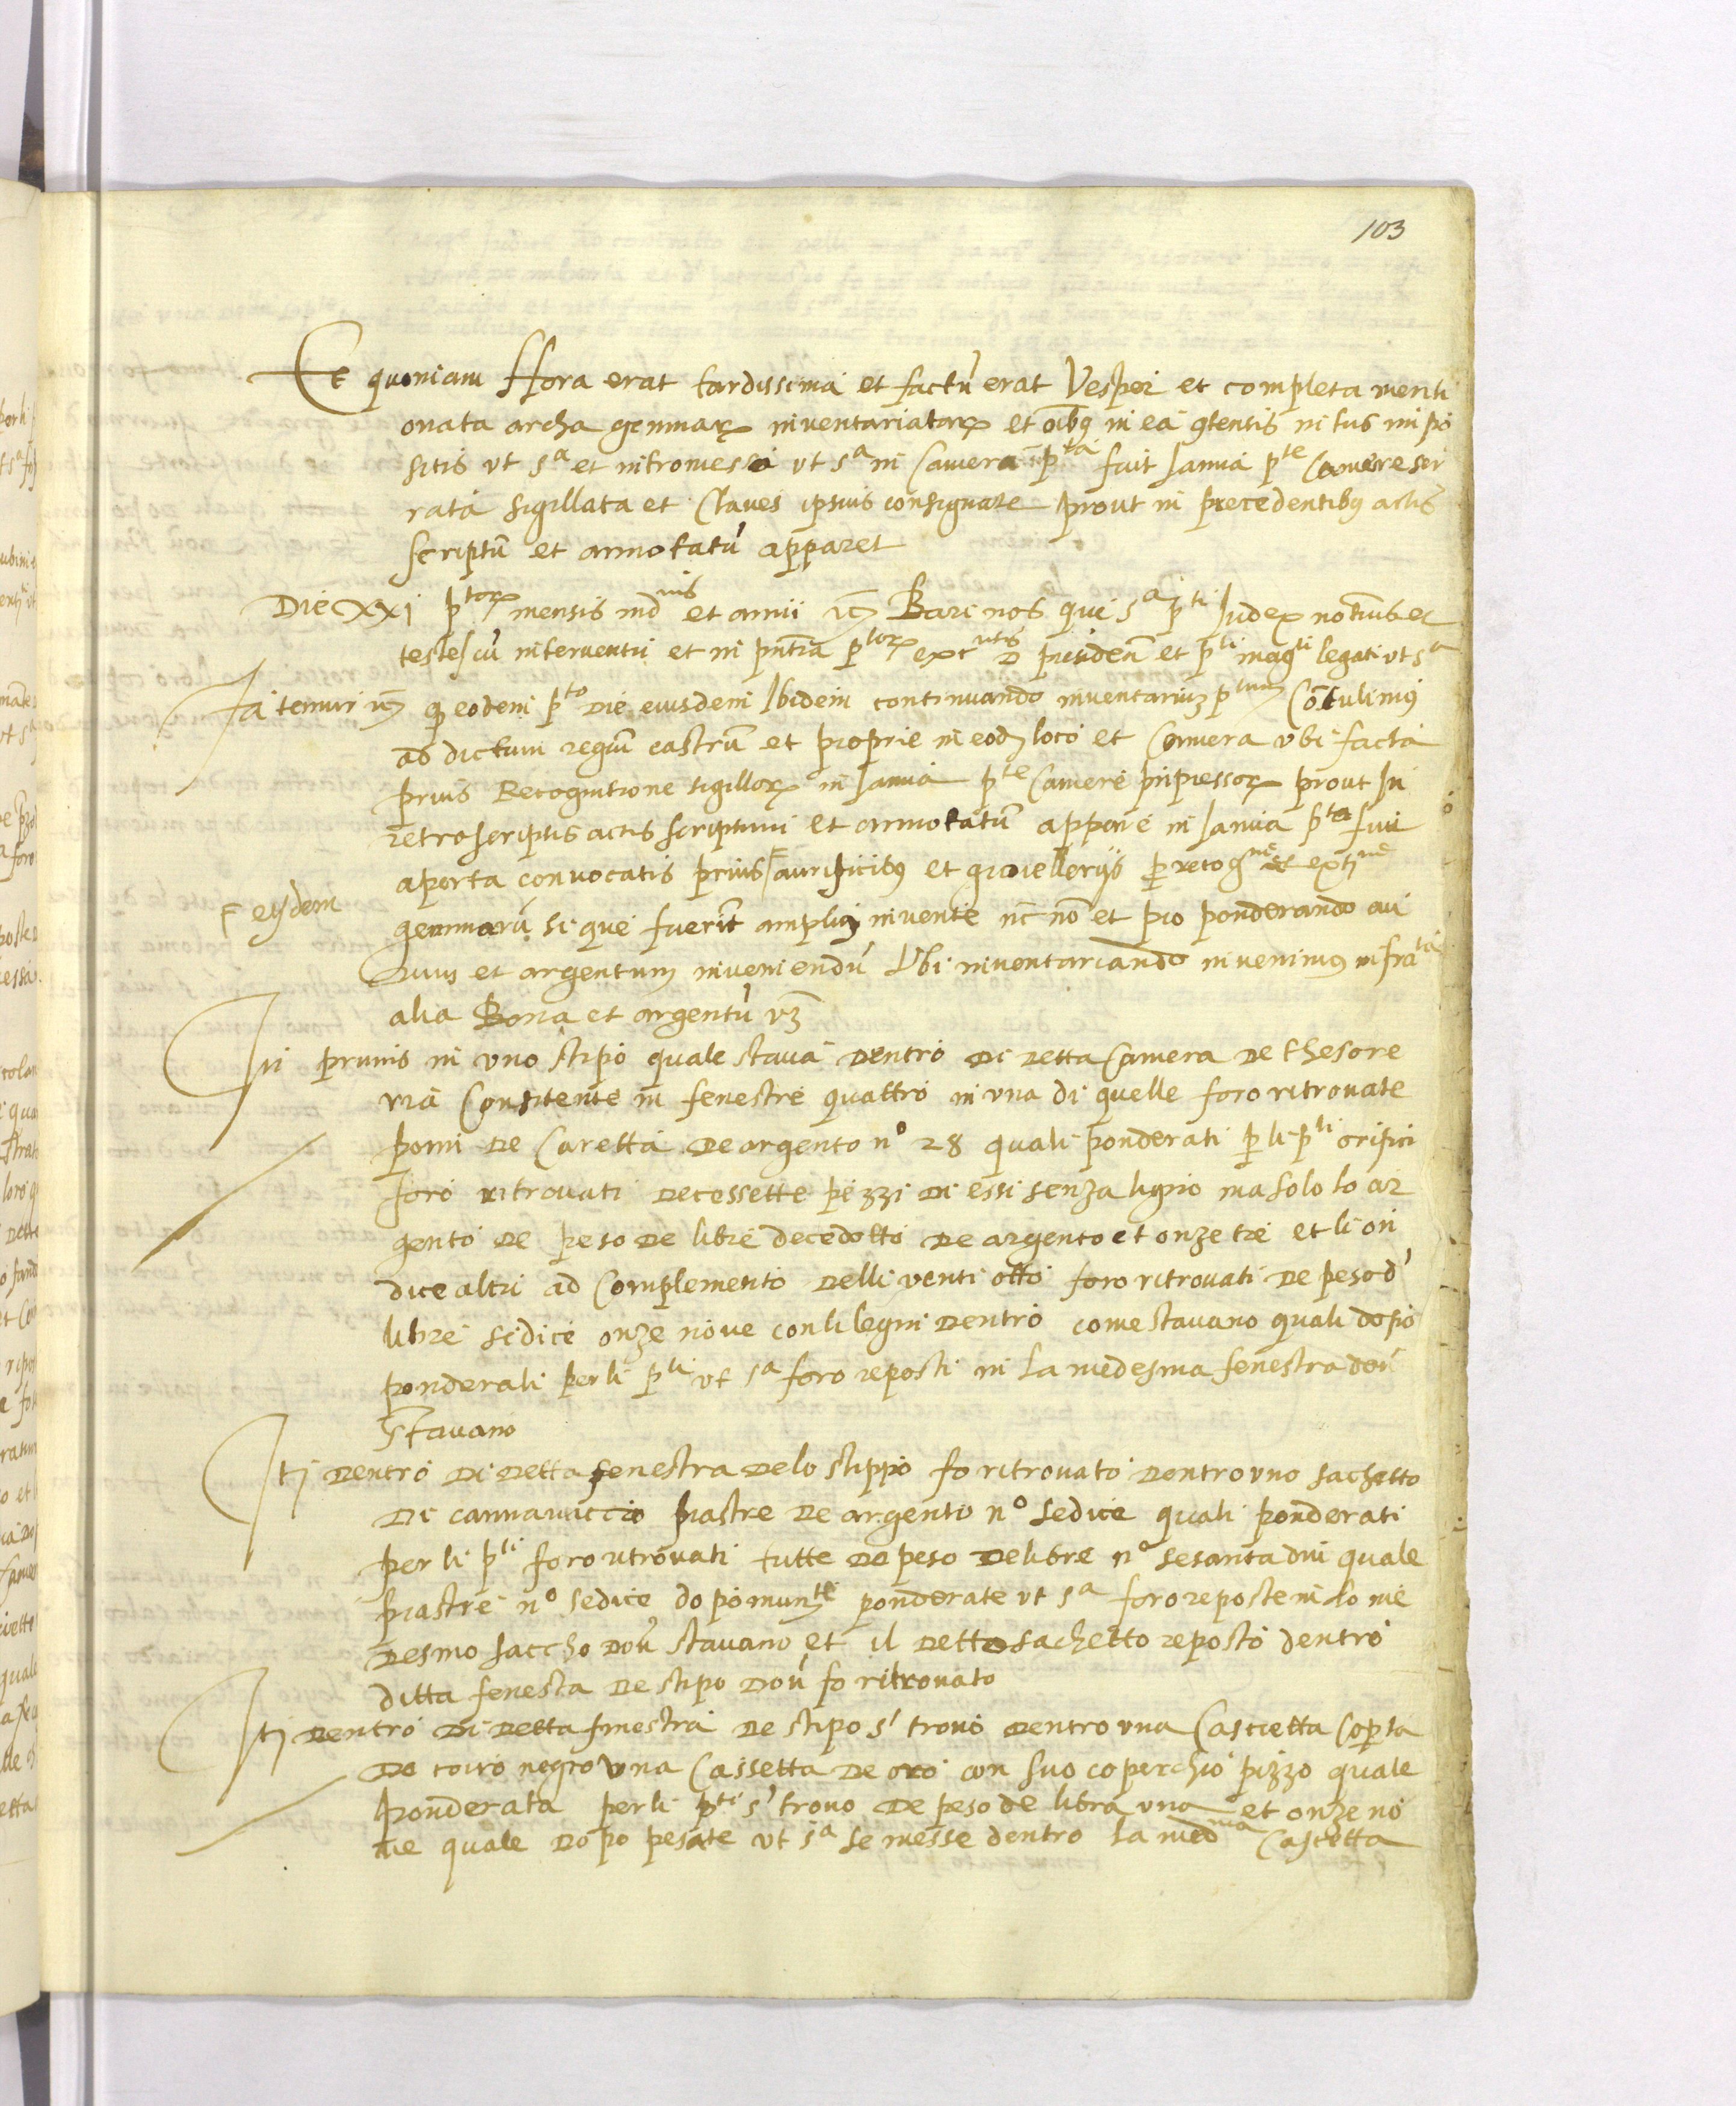 103
Et quoniam Hora erat tardissima et factũ erat Vesper et completa menti
onata archa gemmarꝝ inventariatarꝝ et oĩbꝫ in ea ɔtentis intus impo
sitis ut sᵃ et intromessa ut sᵃ in Camera pᵗᵃ fuit Janua pᵗᵉ Camere ser
rata sigillata et Claves ipsius consignate prout in precedentibꝫ actis
scriptũ et annotatũ apparet
Die xxj pᵗᵒʳꝝ mensis indⁿⁱˢ et anni Bari nos qui sᵃ pᵗⁱ Judex notariꝰ et
testes cũ interventu et in pñtia pᵗᵒʳꝝ D president et pᵗⁱ magᶜⁱ legati ut sᵃ
fatemur qꝫ eodem pᵗᵒ Die eiusdem Ibidem continuando inventariũ pᵗᵘᵐ Cõtulimꝰ
ad dictum regiũ castrũ et proprie in eodꝫ loco et Camera ubi facta
prius Recognitione sigillorꝝ in Janua pᵗᵉ Camere inpressorꝝ prout In
retroscriptis actis scriptum et annotatũ apparet in Janua pᵗᵃ fuit
aperta convocatis prius aurificibꝫ et gioiellerijs ꝑ recogⁿᵉ et
eisdem
gemmarũ si que fuerĩt amplius invente nc nõ et pro ponderando au
rum et argentum inveniendũ Ubi inventariando invenimꝰ infraᵗᵃ
alia Bona et argentũ vꝫ
In primis in uno stipo quale stava dentro di detta Camera de thesore
ria Consitente in fenestre quattro in una di quelle foro ritrovate
pomi de Caretta de argento nº 28 quali ponderati ꝑ li pᵗⁱ orifici
foro ritrovati decessette pezzi di essi senza ligno ma solo lo ar
gento de peso de libre decedotto de argento et onze tre et li on
dice altri ad Complemento delli venti otto foro ritrovati de peso d'
libre sidice onze nove con li legni dentro come stavano quali dopo
ponderati per li pᵗⁱ ut sᵃ foro reposti in la medesma fenestra dov'
Stavano
Itẽ dentro di detta fenestra de lo stippo fo ritrovato dentro uno sachetto
di cannavaccio piastre de argento nº sedice quali ponderati
per li pᵗⁱ foro ritrovati tutte de peso de libre nº sesanta dui quale
piastre nº sedice dopo ponderate ut sᵃ foro reposte in lo me
desmo saccho dov' stavano et il detto sachetto reposto dentro
ditta fenesta de stipo dov' fo ritrovato
Itẽ dentro di detta finestra de stipo s' trovò dentro una Cascietta Coperta
de coiro negro una Cassetta de oro con suo coperchio pizzo quale
ponderata per li pᵗⁱ s' trovo de peso de libra una et onze no
ve quale dopo pesate ut sᵃ se messe dentro la medᵐᵃ Cascetta